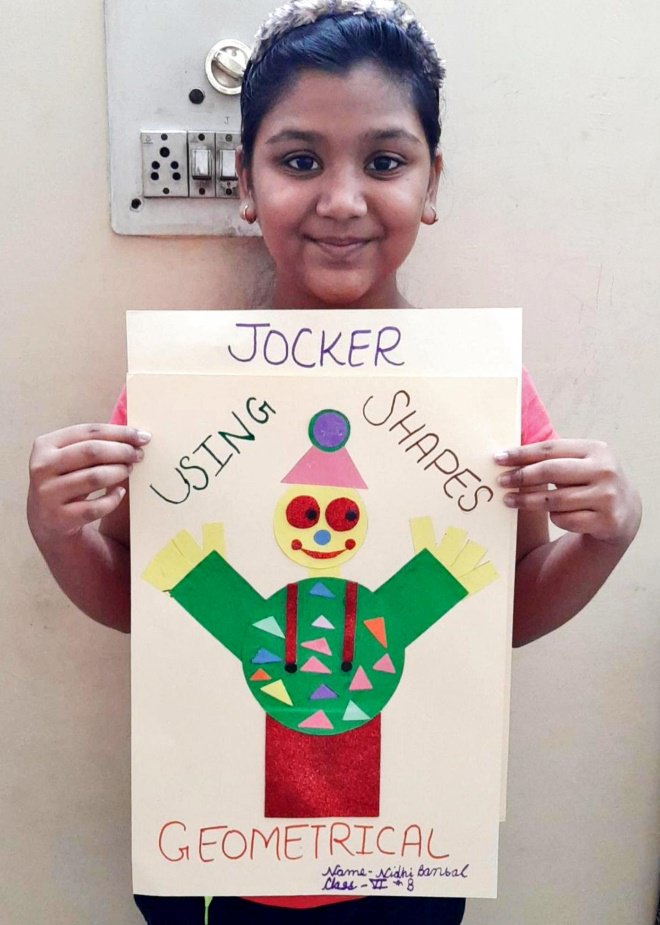 JOCKER
USING
SHAPES
GEOMETRICAL
Name - Nidhi Bansal
Class - VI * 8